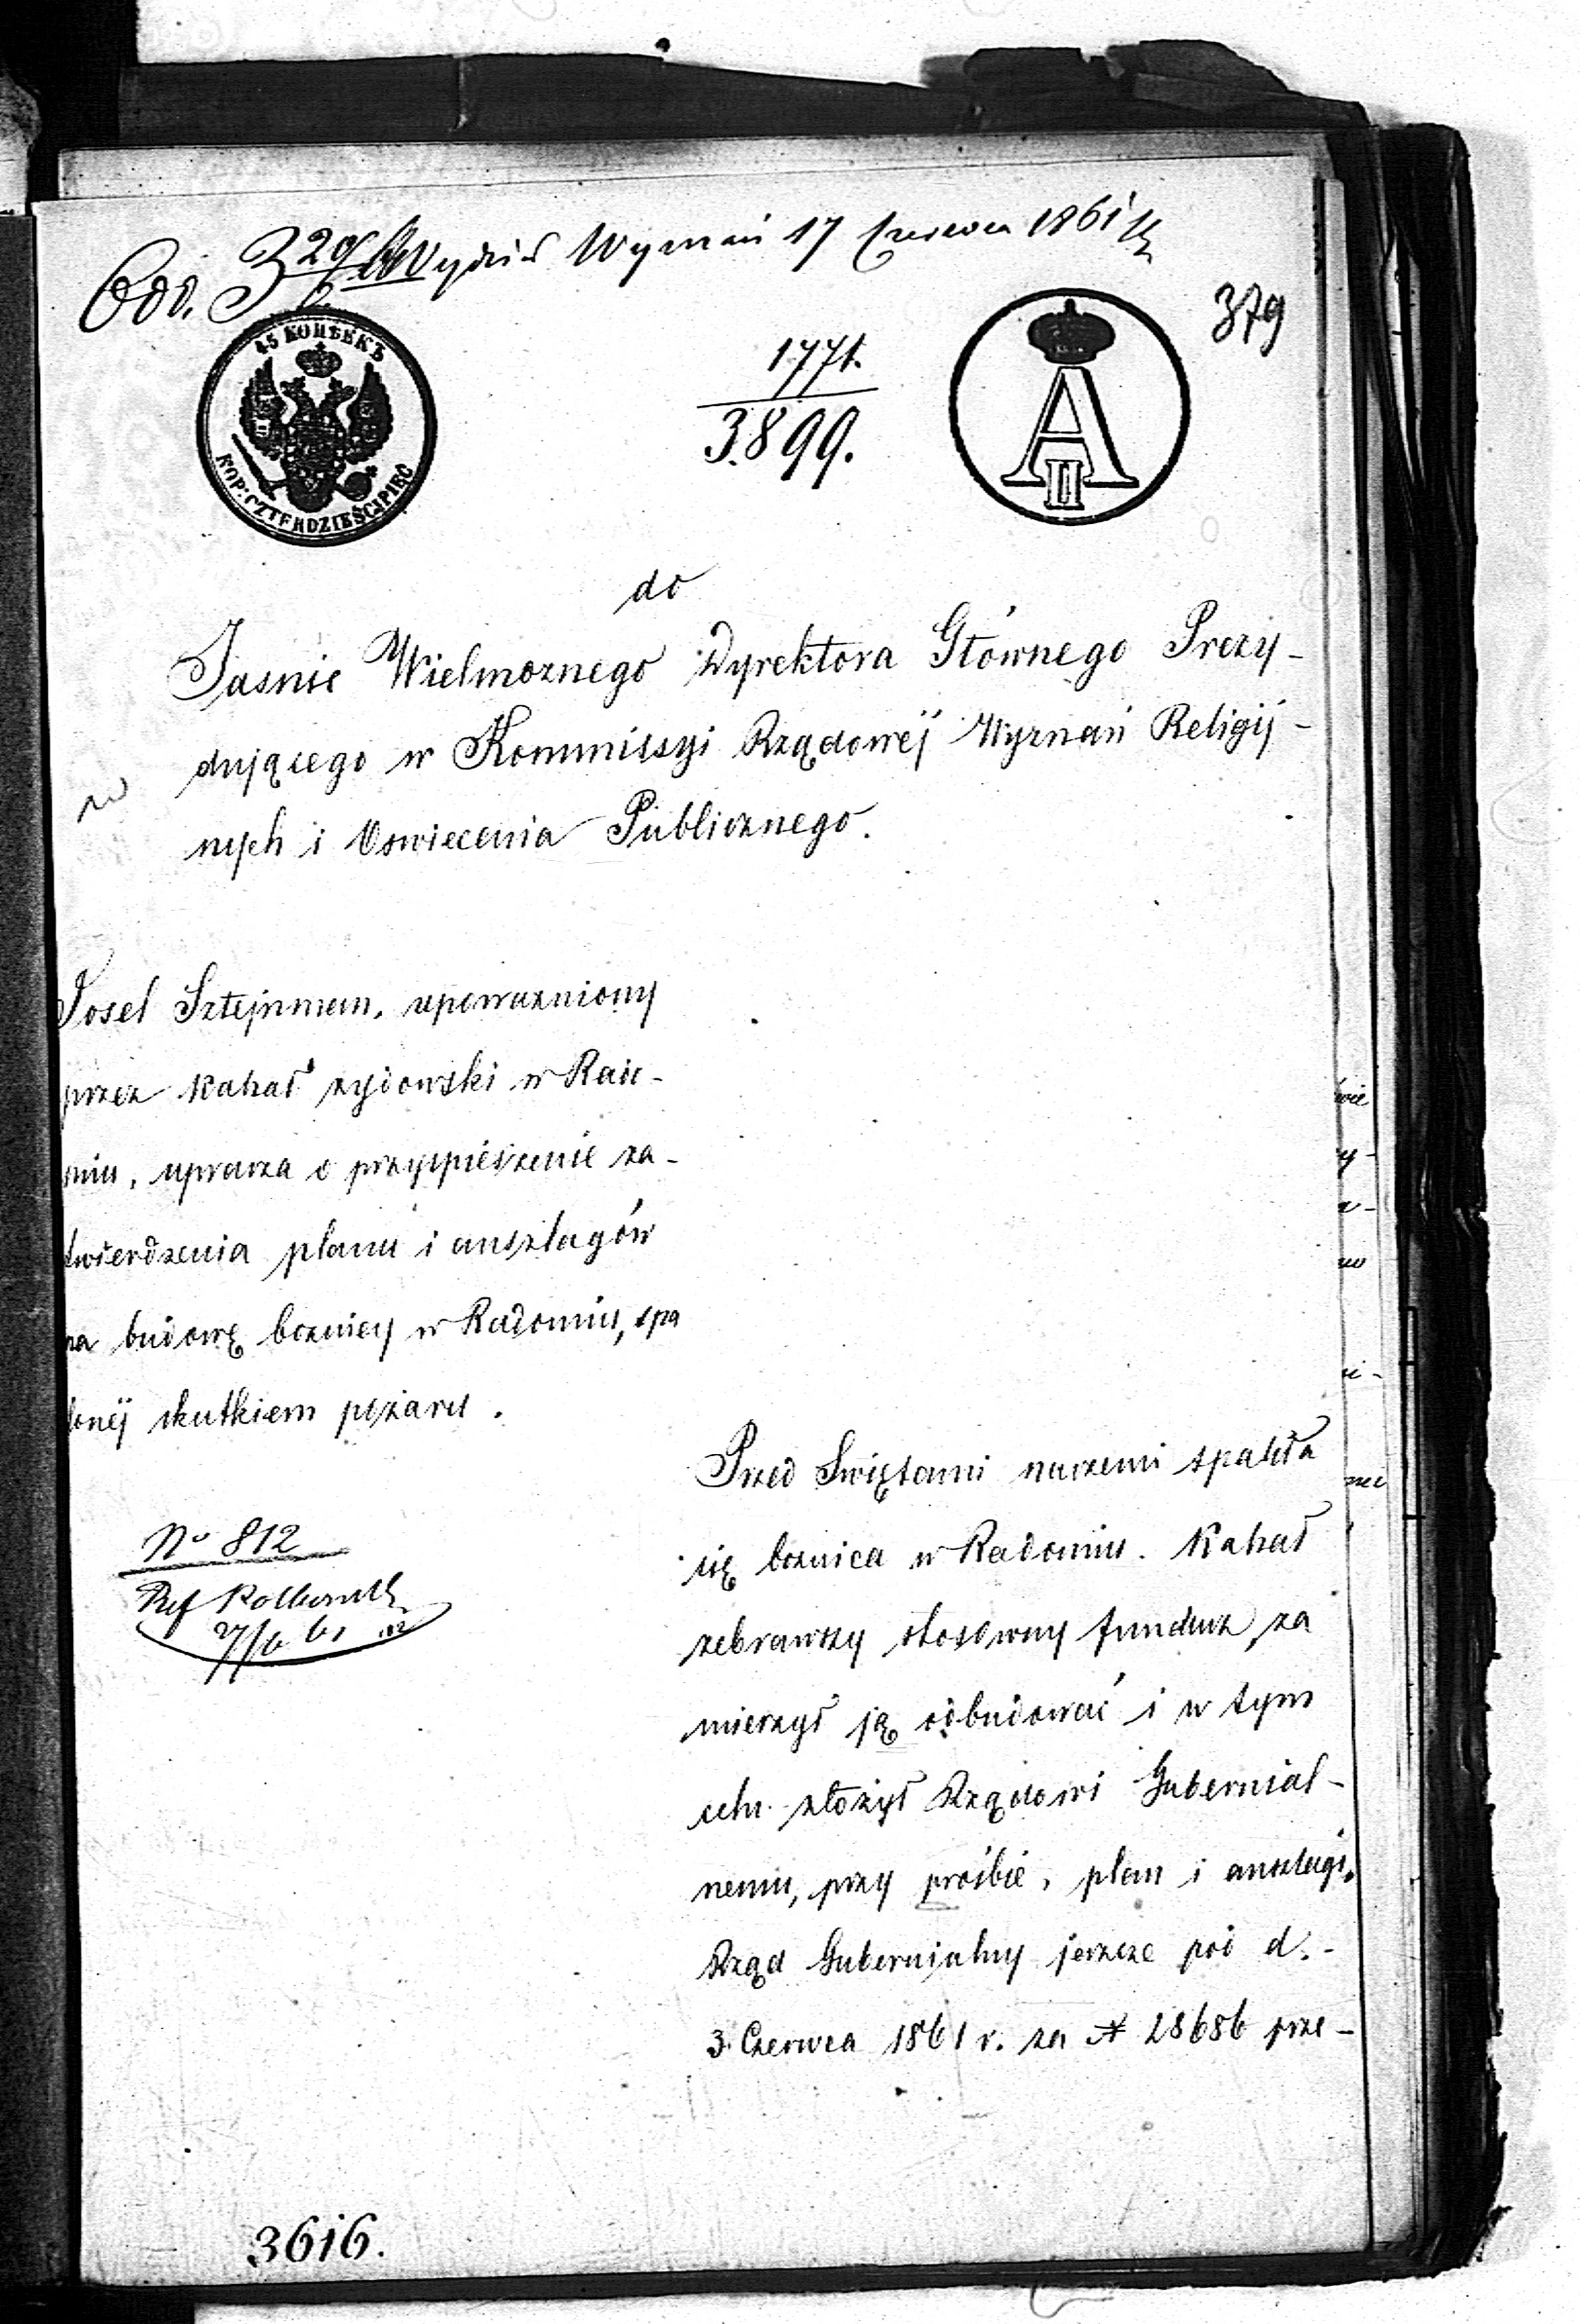 Odd. 3 29/6 Wydział Wyznań 17 Czerwca 1861
379
45 КОПѢЕКЪ
KOP: CZTERDZIEŚCI PIĘĆ
1771.
3899.
A
II
do
Jasnie Wielmoznego Dyrektora Głównego Prezy-
dującego w Kommissyi Rządowéj Wyznań Religij-
nych i Oswiecenia Publicznego.
Josel Sztejnman, upowazniony
przez Kahał zydowski w Rado-
miu, uprasza o przyspieszenie za-
twierdzenia planu i anszlagów
na budowę boznicy w Radomiu, spa
lonéj skutkiem pożaru.
No 812
Ref
7/6 61
Przed Swiętami naszemi spaliła
się boznica w Radomiu. Kahał
zebrawszy stosowny fundusz, za
mierzył ją odbudować i w tym
celu złożył Rządowi Gubernial-
nemu, przy prośbie, plan i anszlagi.
Rząd Gubernialny jeszcze pod d.-
3 Czerwca 1861 r. za № 28686 prze-
3616.